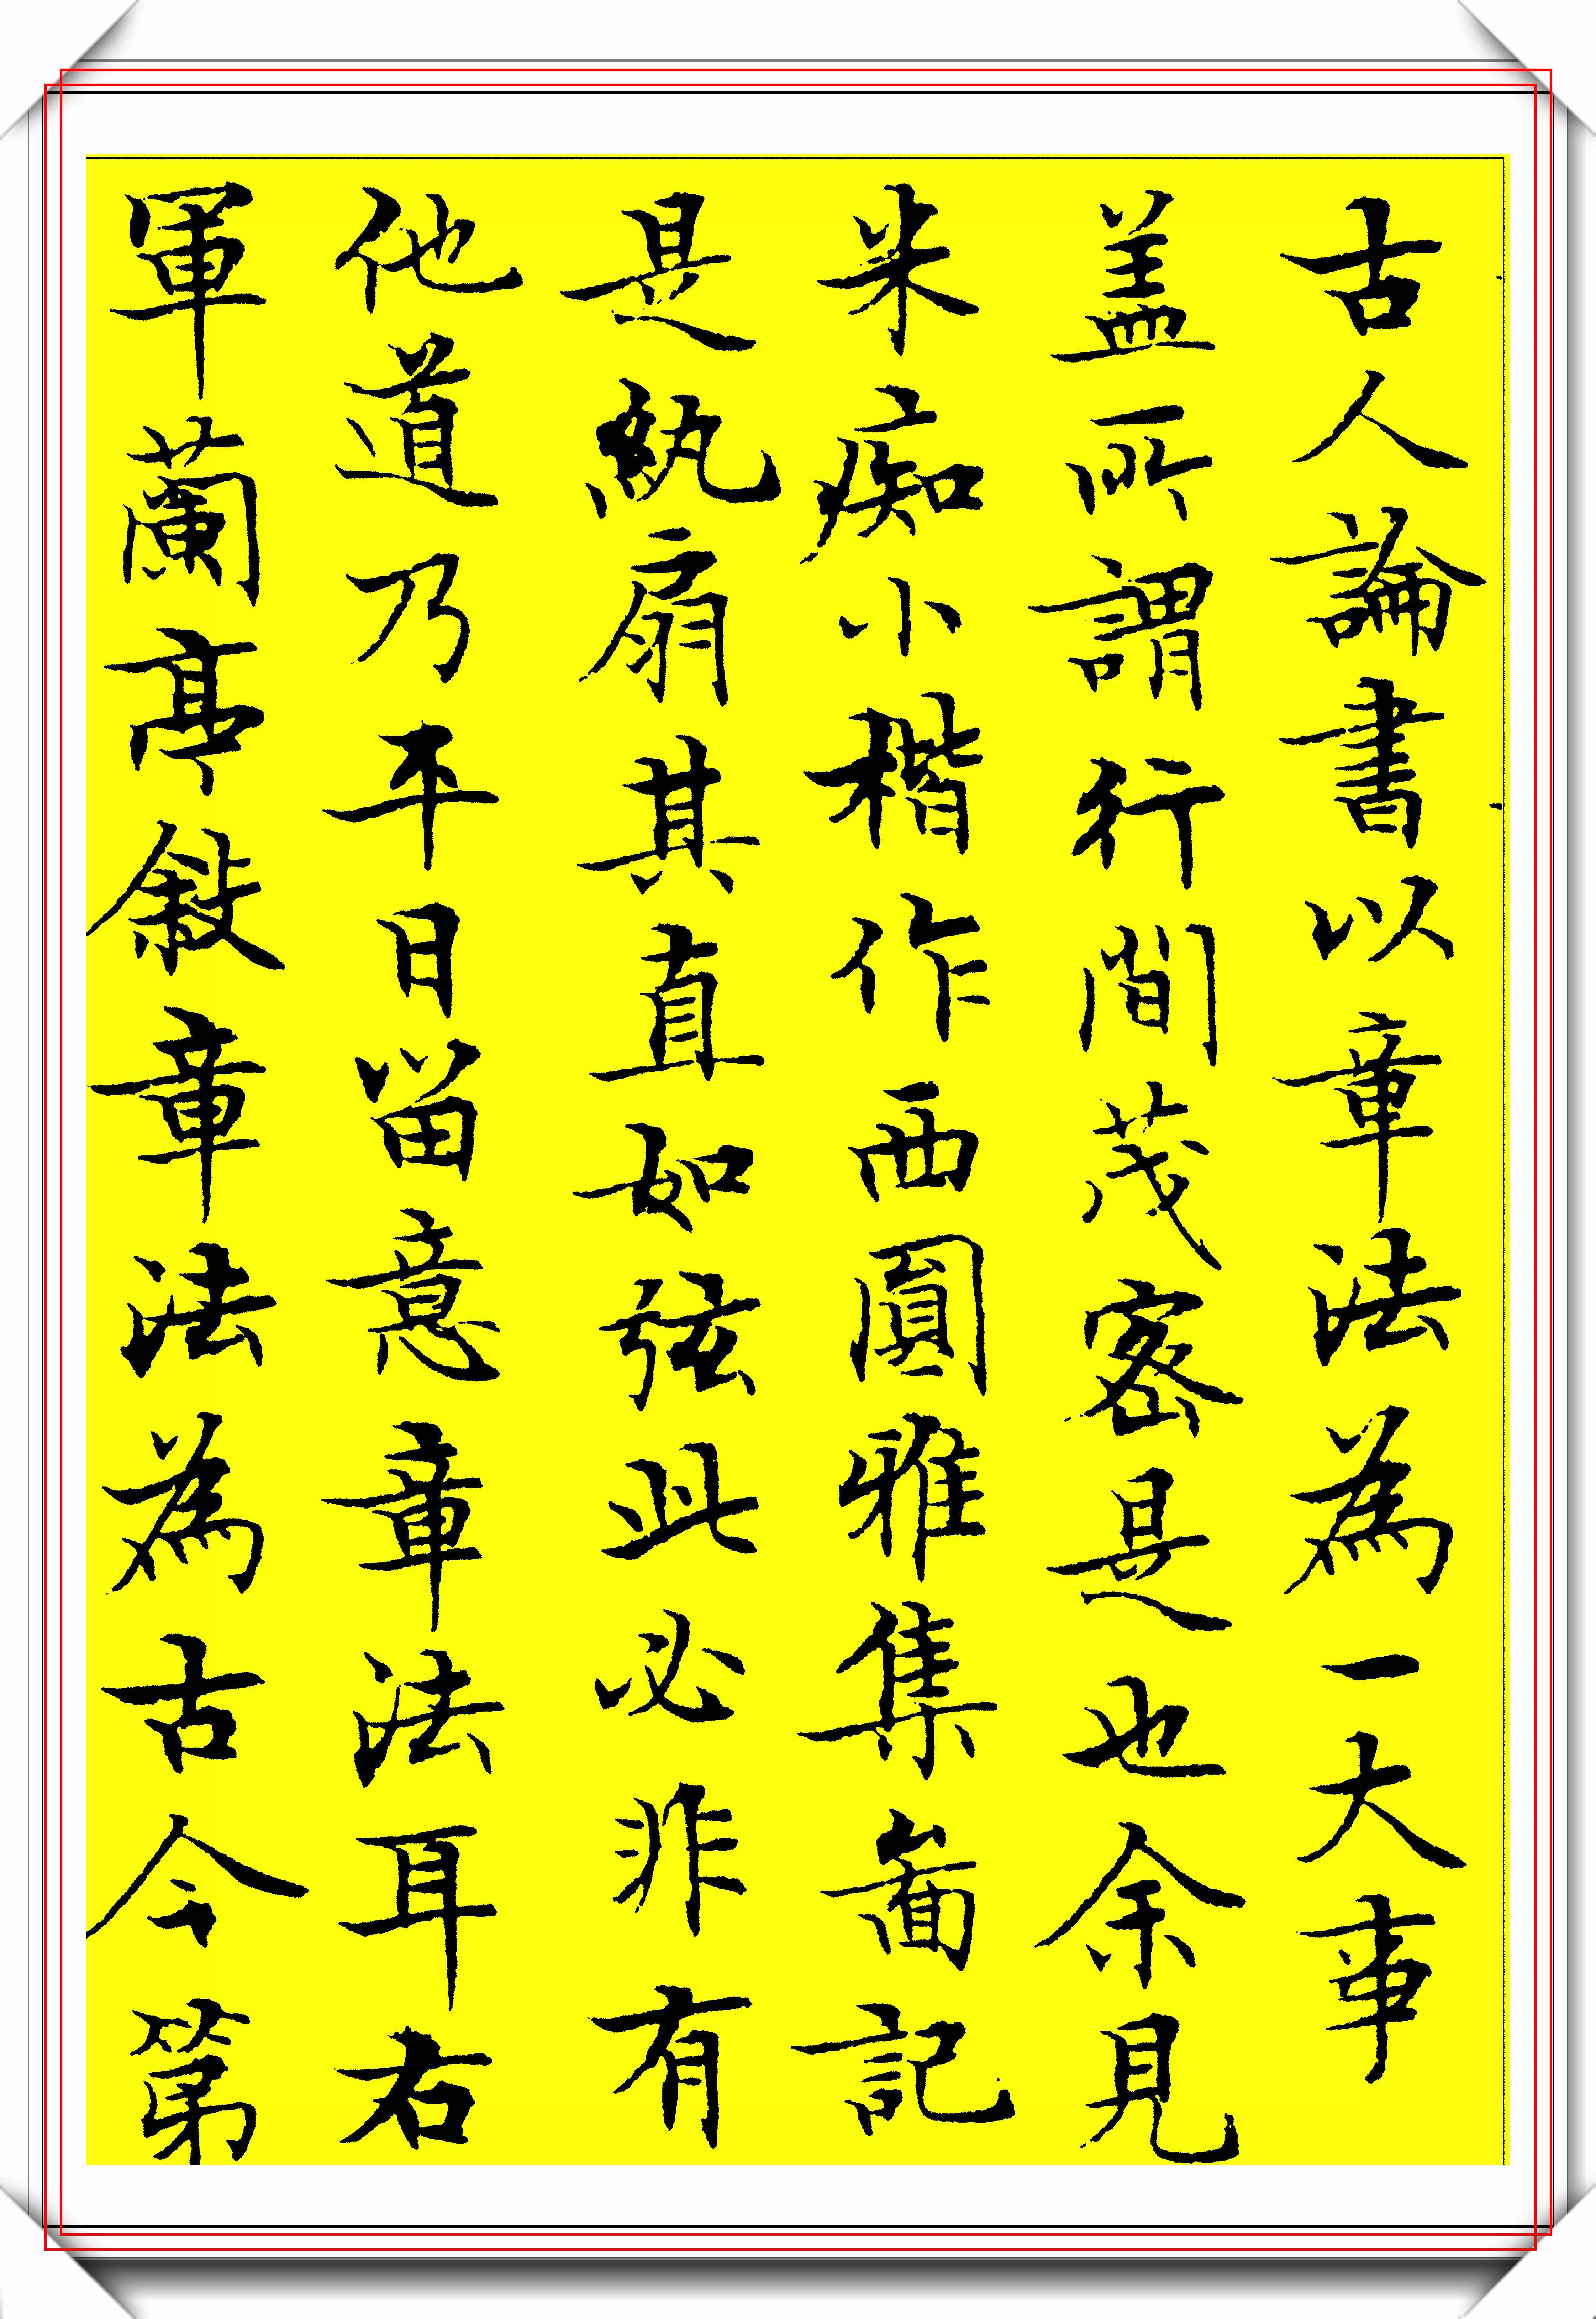 古人論書以章法為一大事
盖所謂行間茂密是也余見
米痴小楷作西園雅集圖記
是紈扇其直如弦此必非有
他道乃平日留意章法耳右
軍蘭亭敘章法為古今第